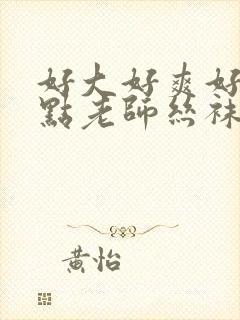 好大好爽好
點老師絲袜
黃怡